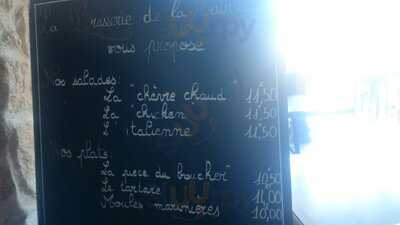 La Brasserie de la
vous propose
Nos salades:
La "chèvre chaud" 11,50
La "chicken 11,50
L' italienne" 11,50
Nos plats
La pièce du boucher"
Le tartare 14,00
Moules marinières 10,00